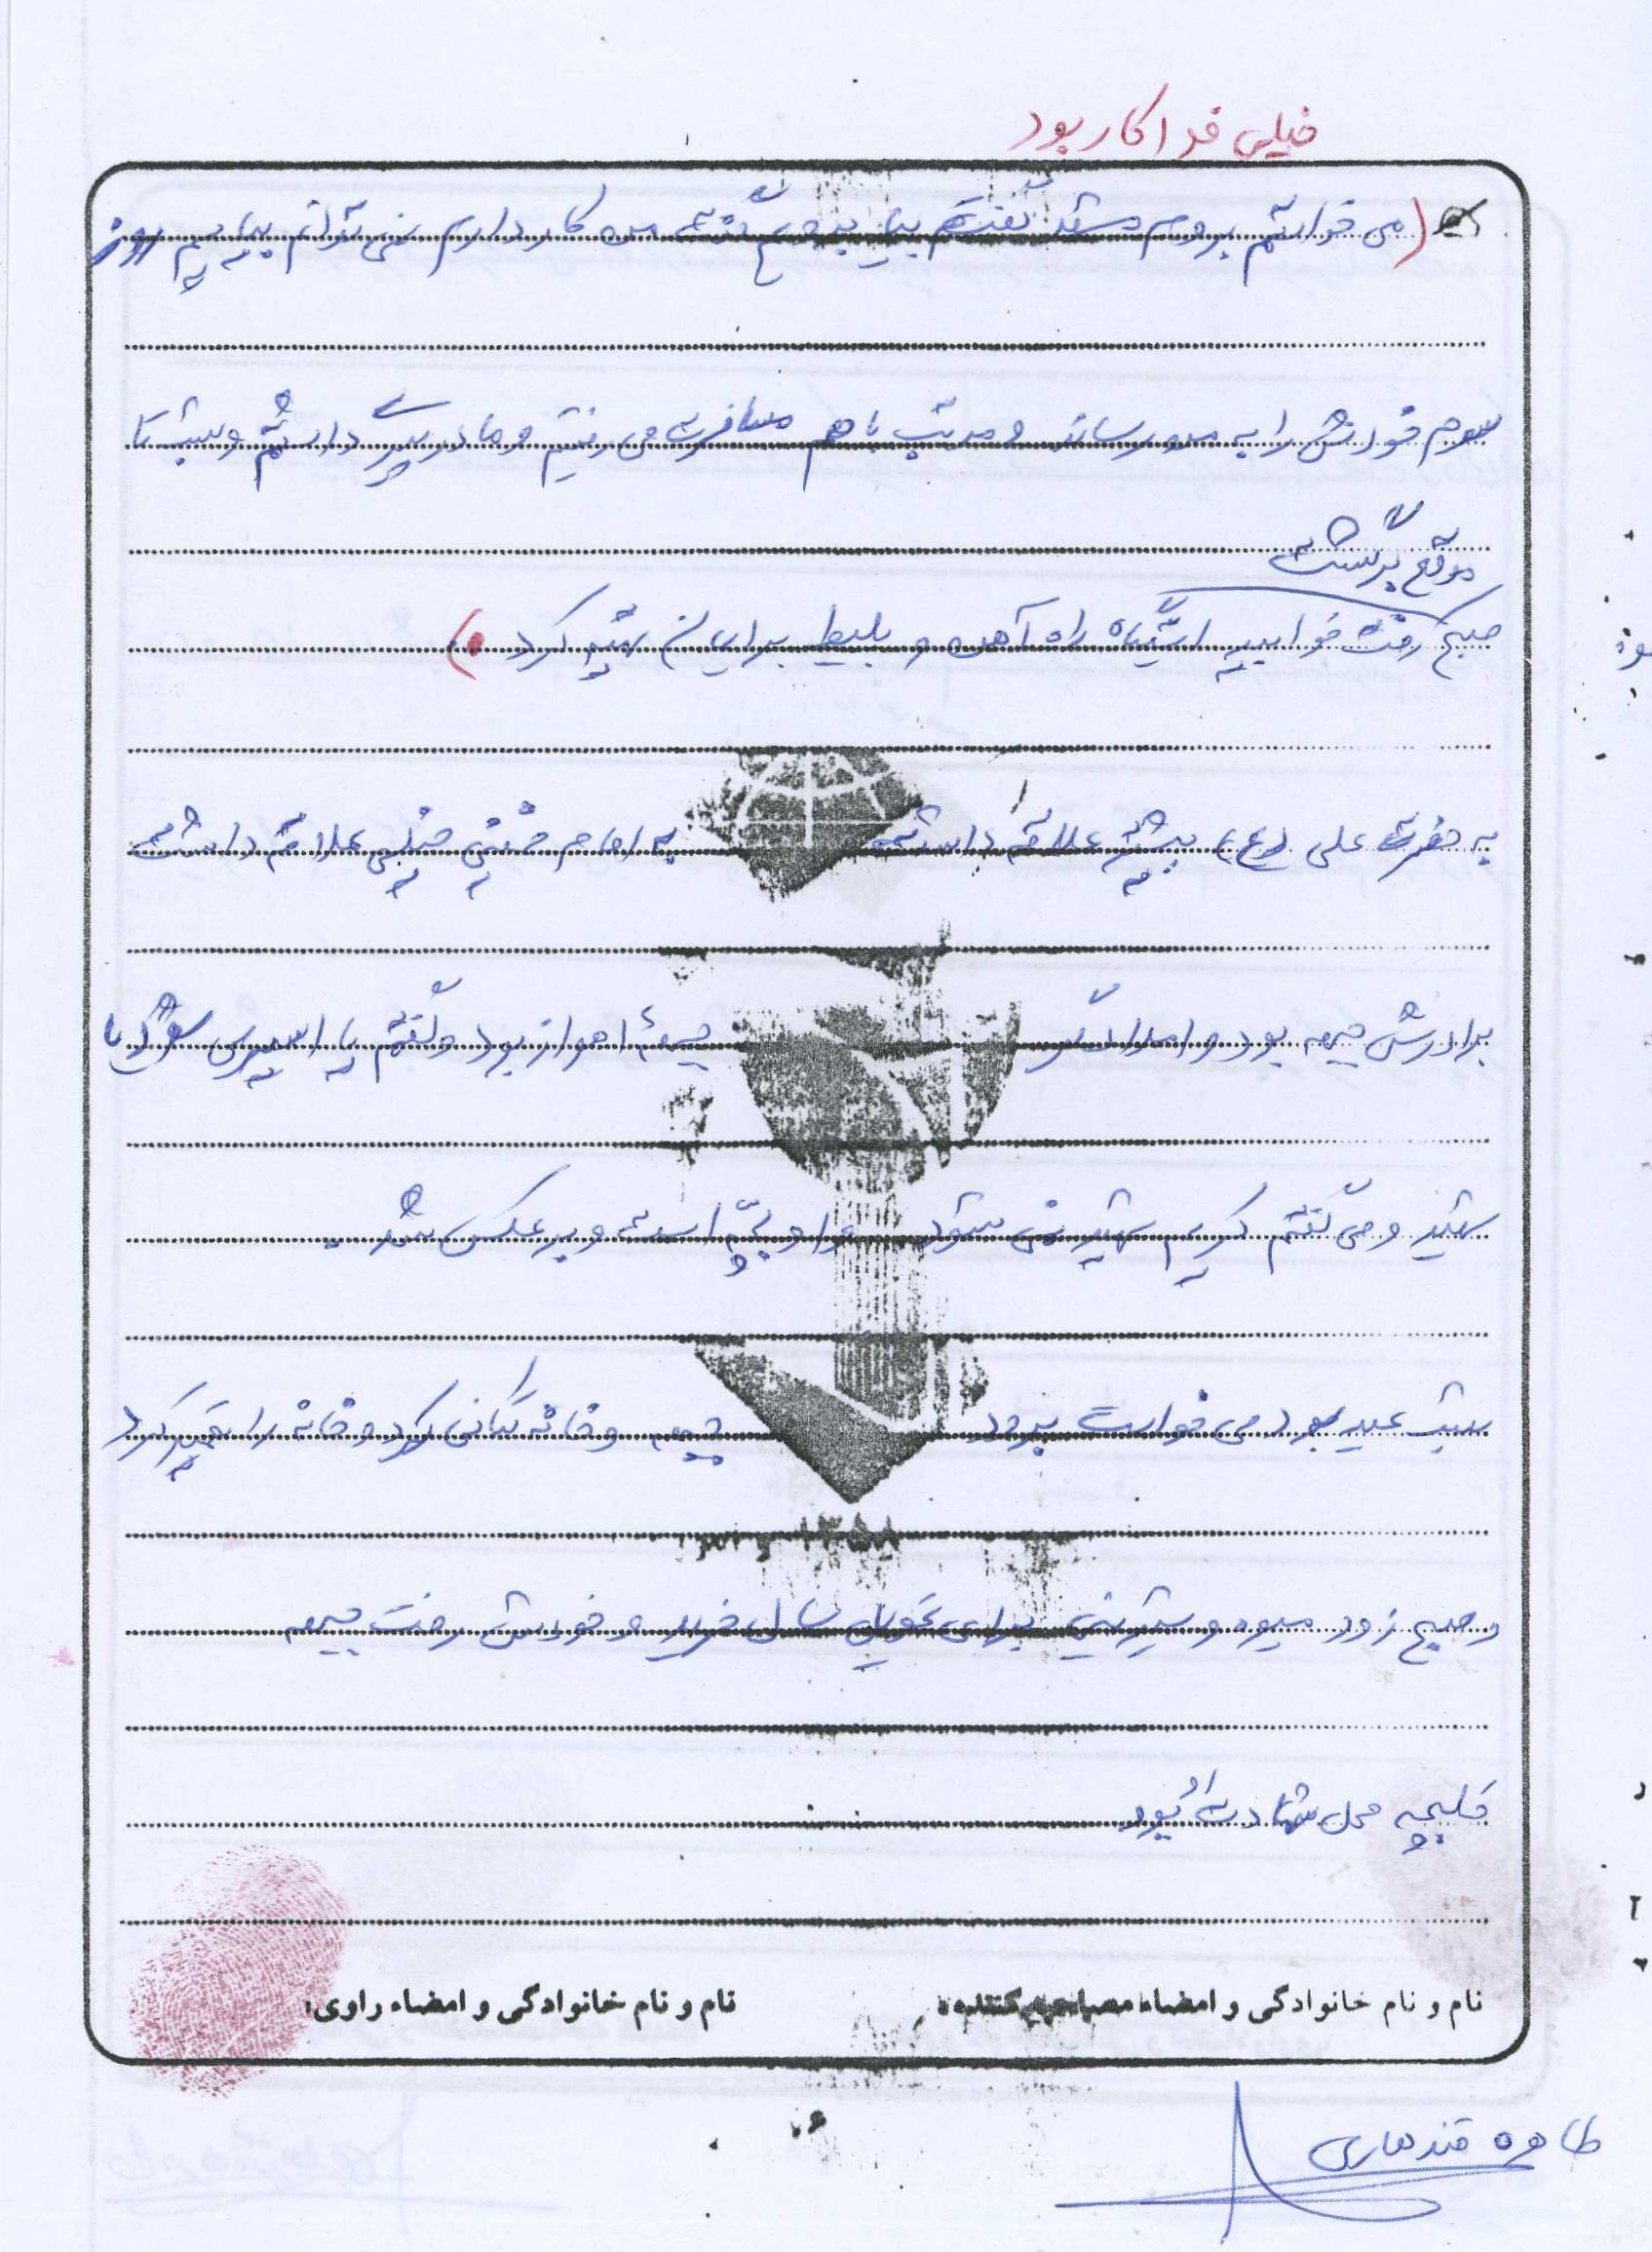 خیلی فداکار بود
(می خواستم بروم مشهد گفتم بیا برویم گفت من کار دارم نمی توانم بیایم روز
سوم خودش را به من رساند و مرتب با هم مسافرت می رفتیم و مادر پیری داشتم و شب تا
موقع برگشت
صبح رفت خوابید ایستگاه راه آهن و بلیط برایمان تهیه کرد.)
به حضرت علی (ع) بیشتر علاقه داشت به امام خمینی خیلی علاقه داشت
برادرش جبهه بود و امدادگر جبهۀ اهواز بود و گفتم یا اسیر می شود یا
شهید و می گفتم کریم شهید نمی شود او بچه است و برعکس شد.
شب عید بود می خواست برود جبهه و خانه تکانی کرد و خانه را تمیز کرد
و صبح زود میوه و شیرینی برای تحویل سال خرید و خودش رفت جبهه
محل شهادت او بود
نام و نام خانوادگی و امضاء مصاحبه کننده:
نام و نام خانوادگی و امضاء راوی:
طاهره قندهاری